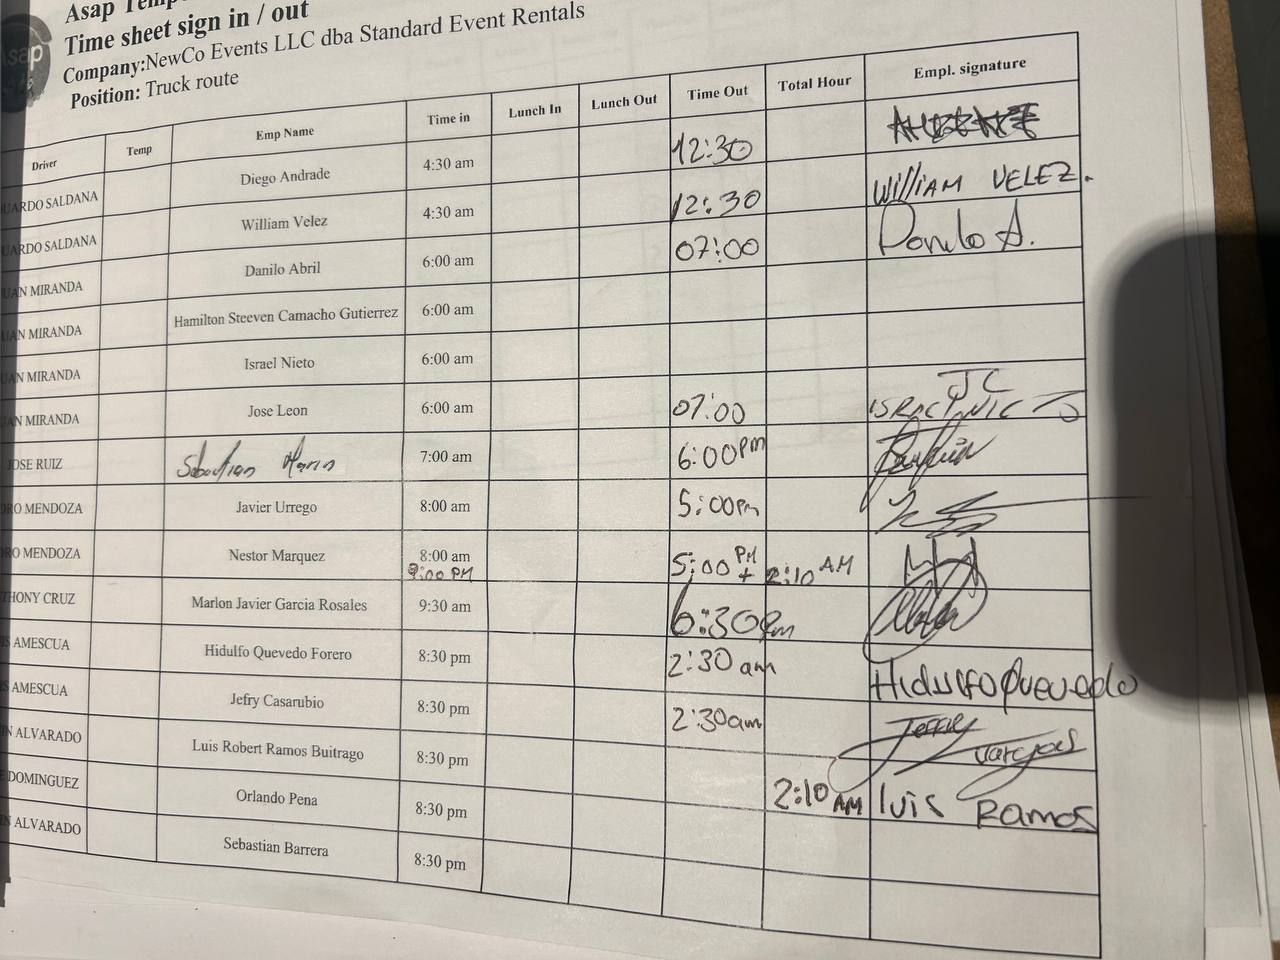 Asap
Asap Temp
Time sheet sign in / out
Company:NewCo Events LLC dba Standard Event Rentals
Position: Truck route
Driver Temp Emp Name Time in Lunch In Lunch Out Time Out Total Hour Empl. signature
UARDO SALDANA Diego Andrade 4:30 am 12:30
UARDO SALDANA William Velez 4:30 am 12:30 William VELEZ.
UAN MIRANDA Danilo Abril 6:00 am 07:00 Danilo A.
UAN MIRANDA Hamilton Steeven Camacho Gutierrez 6:00 am
UAN MIRANDA Israel Nieto 6:00 am
UAN MIRANDA Jose Leon 6:00 am 07:00 JC
JOSE RUIZ Sebastian Marin 7:00 am 6:00pm
RO MENDOZA Javier Urrego 8:00 am 5:00pm
RO MENDOZA Nestor Marquez 8:00 am 5:00 PM + 2:10 AM
9:00 PM
HONY CRUZ Marlon Javier Garcia Rosales 9:30 am 6:30pm
S AMESCUA Hidulfo Quevedo Forero 8:30 pm 2:30 am Hidulfo Quevedo
S AMESCUA Jefry Casarubio 8:30 pm 2:30am Jefry Vargas
N ALVARADO Luis Robert Ramos Buitrago 8:30 pm 2:10 AM luis Ramos
E DOMINGUEZ Orlando Pena 8:30 pm
N ALVARADO Sebastian Barrera 8:30 pm